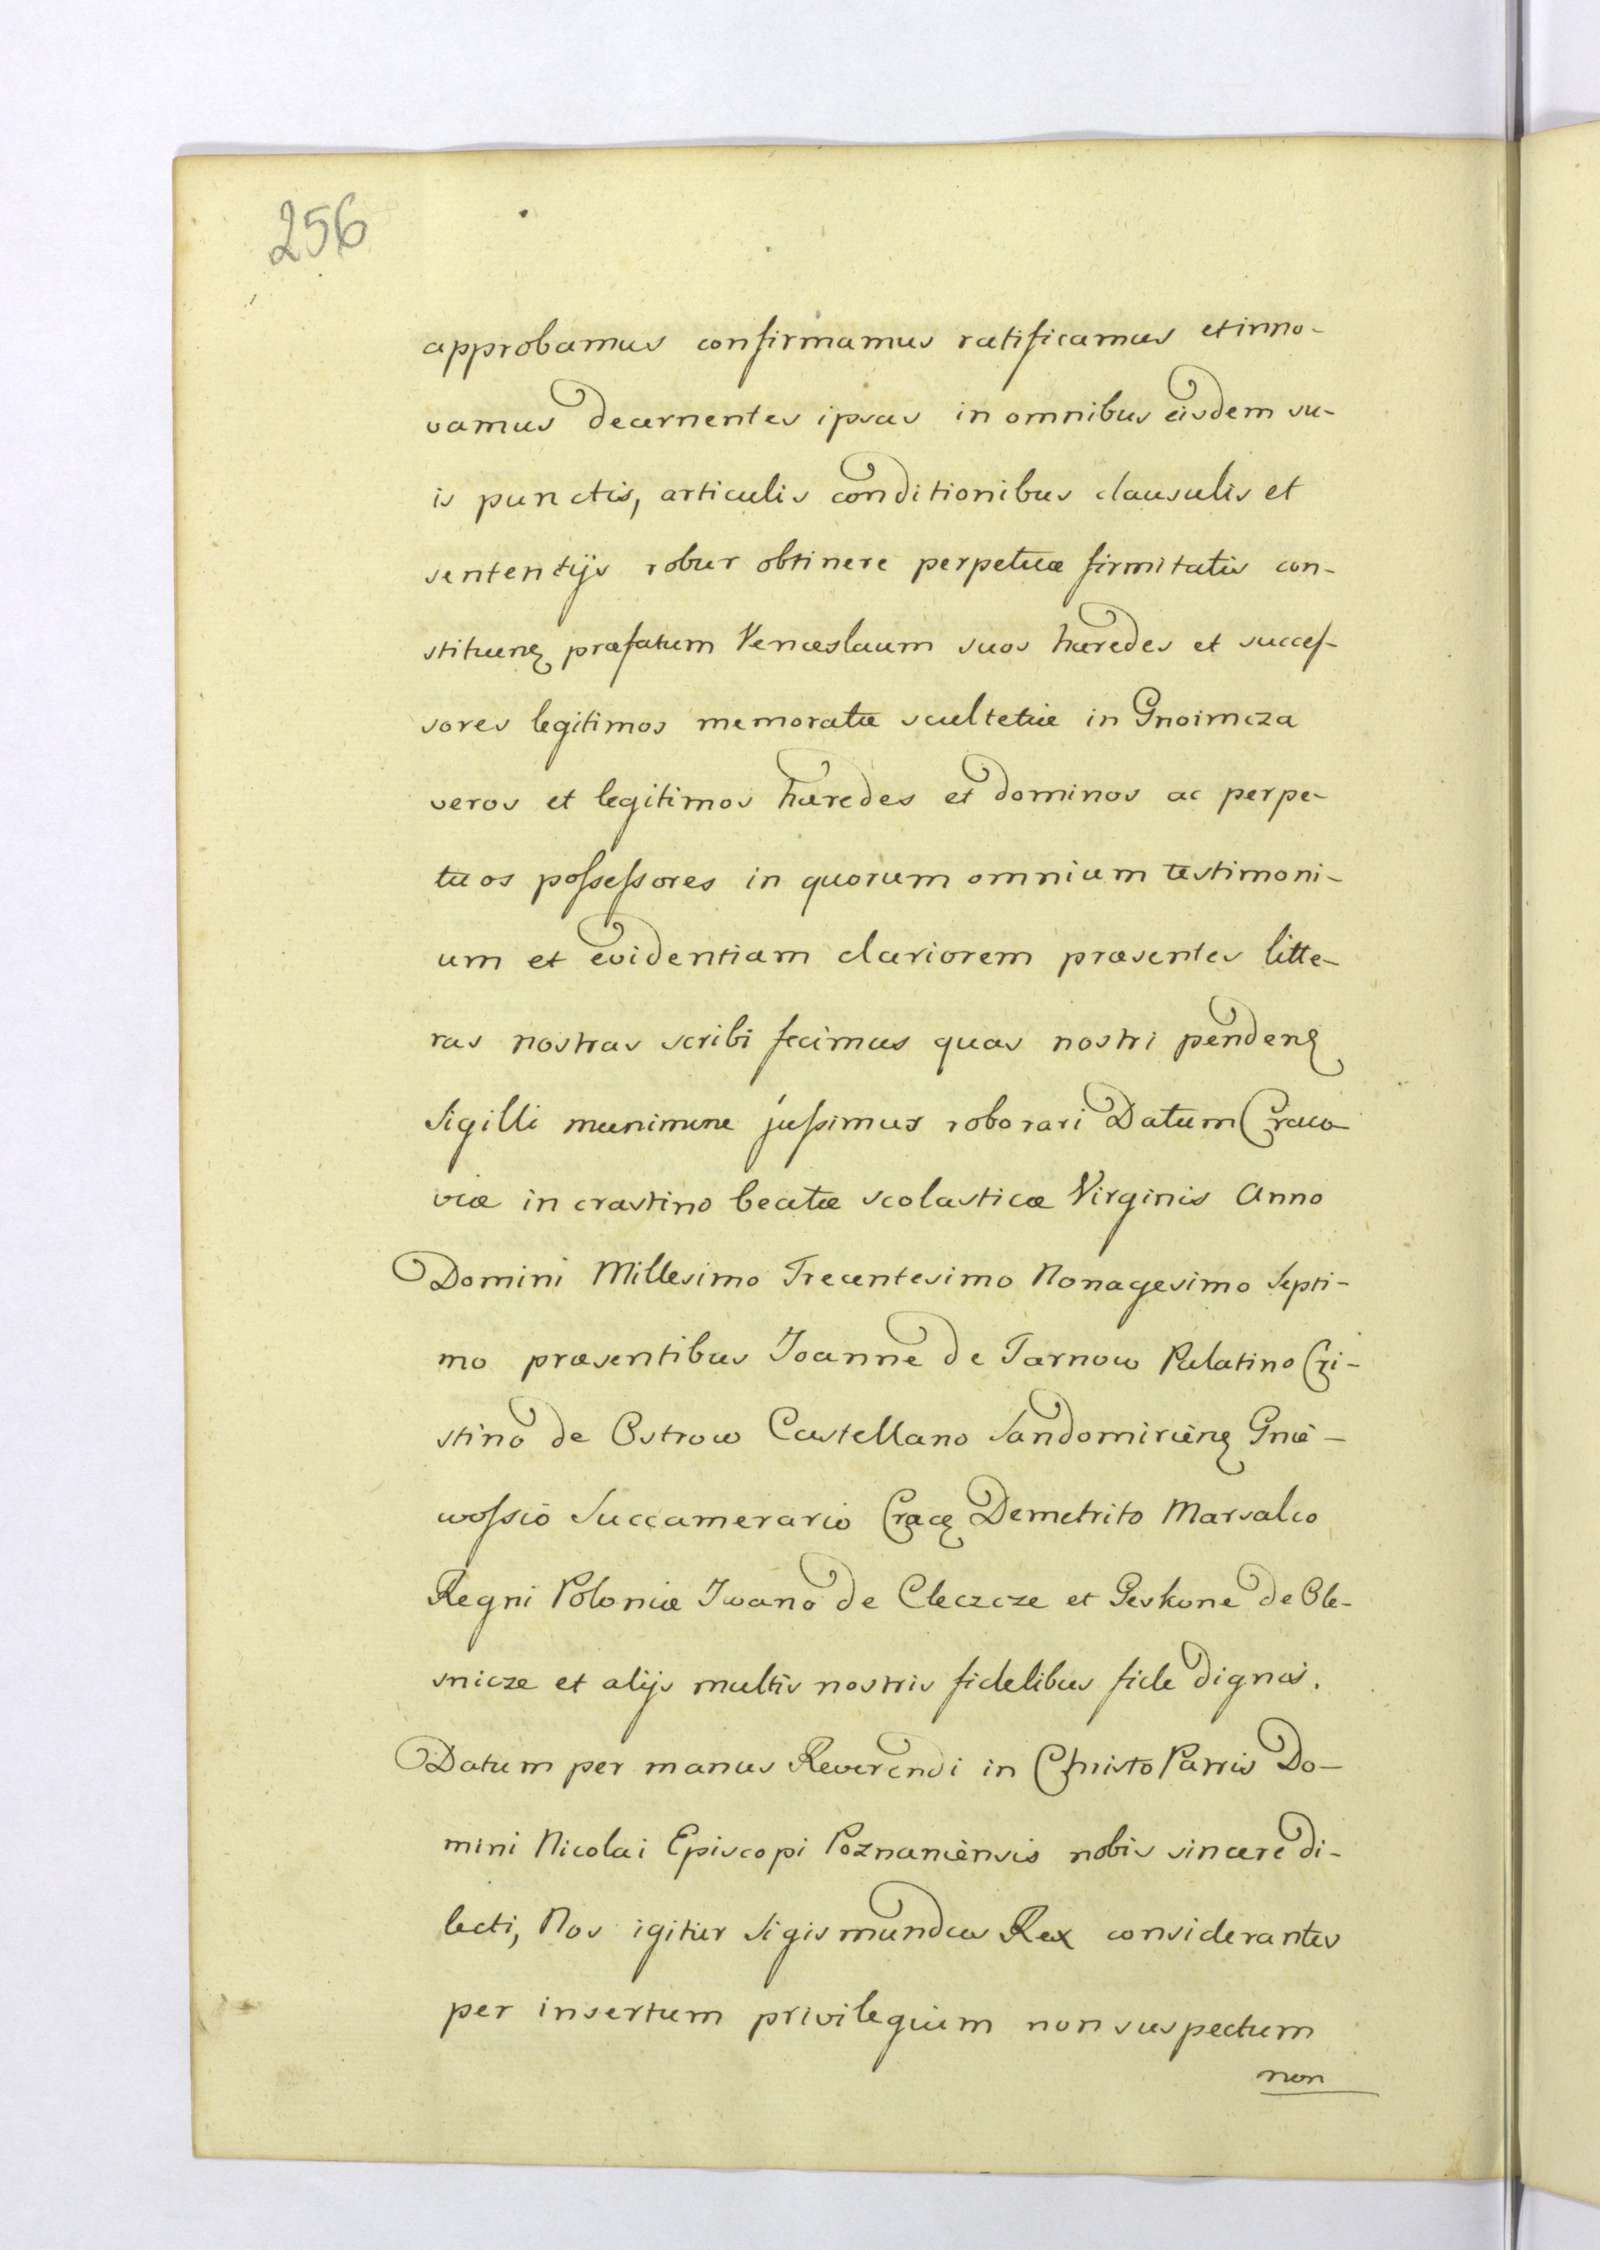 256
approbamus confirmamus ratificamus et inno-
vamus decernentes ipsas in omnibus eisdem su-
is punctis, articulis conditionibus clausulis et
sententijs robur obtinere perpetuæ firmitatis con-
stituenȩ præfatum Venceslaum suos hæredes et succeſ-
sores legitimos memoratæ scultetiæ in Gnoimcza
veros et legitimos hæredes et dominos ac perpe-
tuos poſseſsores in quorum omnium testimoni-
um et evidentiam clariorem præsentes litte-
ras nostras scribi fecimus quas nostri pendenȩ
Sigilli munimine juſsimus roborari Datum Craco
viæ in crastino beatæ scolasticæ Virginis Anno
Domini Millesimo Trecentesimo Nonagesimo Septi-
mo præsentibus Joanne de Tarnow Palatino Cri-
stino de Ostrow Castellano Sandomirienȩ Gnie-
woſsio Succamerario Cracȩ Demetrito Marsalco
Regni Poloniæ Iwano de Cleczcze et Peskone de Ole-
snicze et alijs multis nostris fidelibus fide dignis.
Datum per manus Reverendi in Christo Patris Do-
mini Nicolai Episcopi Poznaniensis nobis sincere di-
lecti, Nos igitur Sigismundus Rex considerantes
per insertum privilegium non suspectum
non